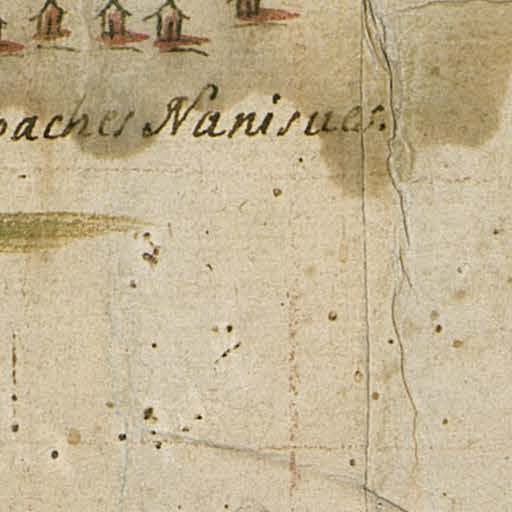 paches Nanisues.